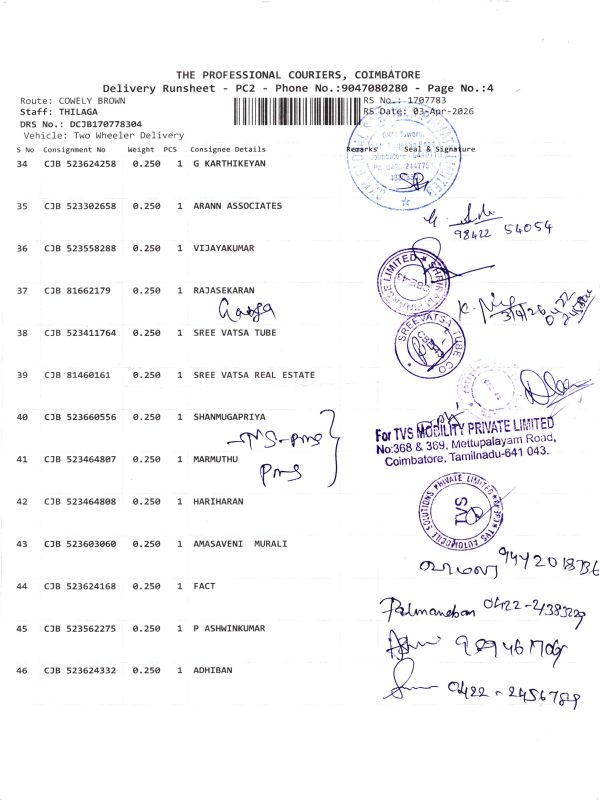 THE PROFESSIONAL COURIERS, COIMBATORE
Delivery Runsheet - PC2 - Phone No.:9047080280 - Page No.:4
Route: COWELY BROWN
RS No.: 1707783
Staff: THILAGA
RS Date: 03-Apr-2026
DRS No.: DCJB170778304
Vehicle: Two Wheeler Delivery
S No Consignment No Weight PCS Consignee Details Remarks Seal & Signature
34 CJB 523624258 0.250 1 G KARTHIKEYAN
35 CJB 523302658 0.250 1 ARANN ASSOCIATES
98422 54054
36 CJB 523558288 0.250 1 VIJAYAKUMAR
37 CJB 81662179 0.250 1 RAJASEKARAN
38 CJB 523411764 0.250 1 SREE VATSA TUBE
SREEVATSA TUBE CO
39 CJB 81460161 0.250 1 SREE VATSA REAL ESTATE
40 CJB 523660556 0.250 1 SHANMUGAPRIYA
For TVS MOBILITY PRIVATE LIMITED
No:368 & 369, Mettupalayam Road,
Coimbatore, Tamilnadu-641 043.
41 CJB 523464807 0.250 1 MARMUTHU
PMS
42 CJB 523464808 0.250 1 HARIHARAN
TVS
43 CJB 523603060 0.250 1 AMASAVENI MURALI
44 CJB 523624168 0.250 1 FACT
45 CJB 523562275 0.250 1 P ASHWINKUMAR
46 CJB 523624332 0.250 1 ADHIBAN
0422-2456789